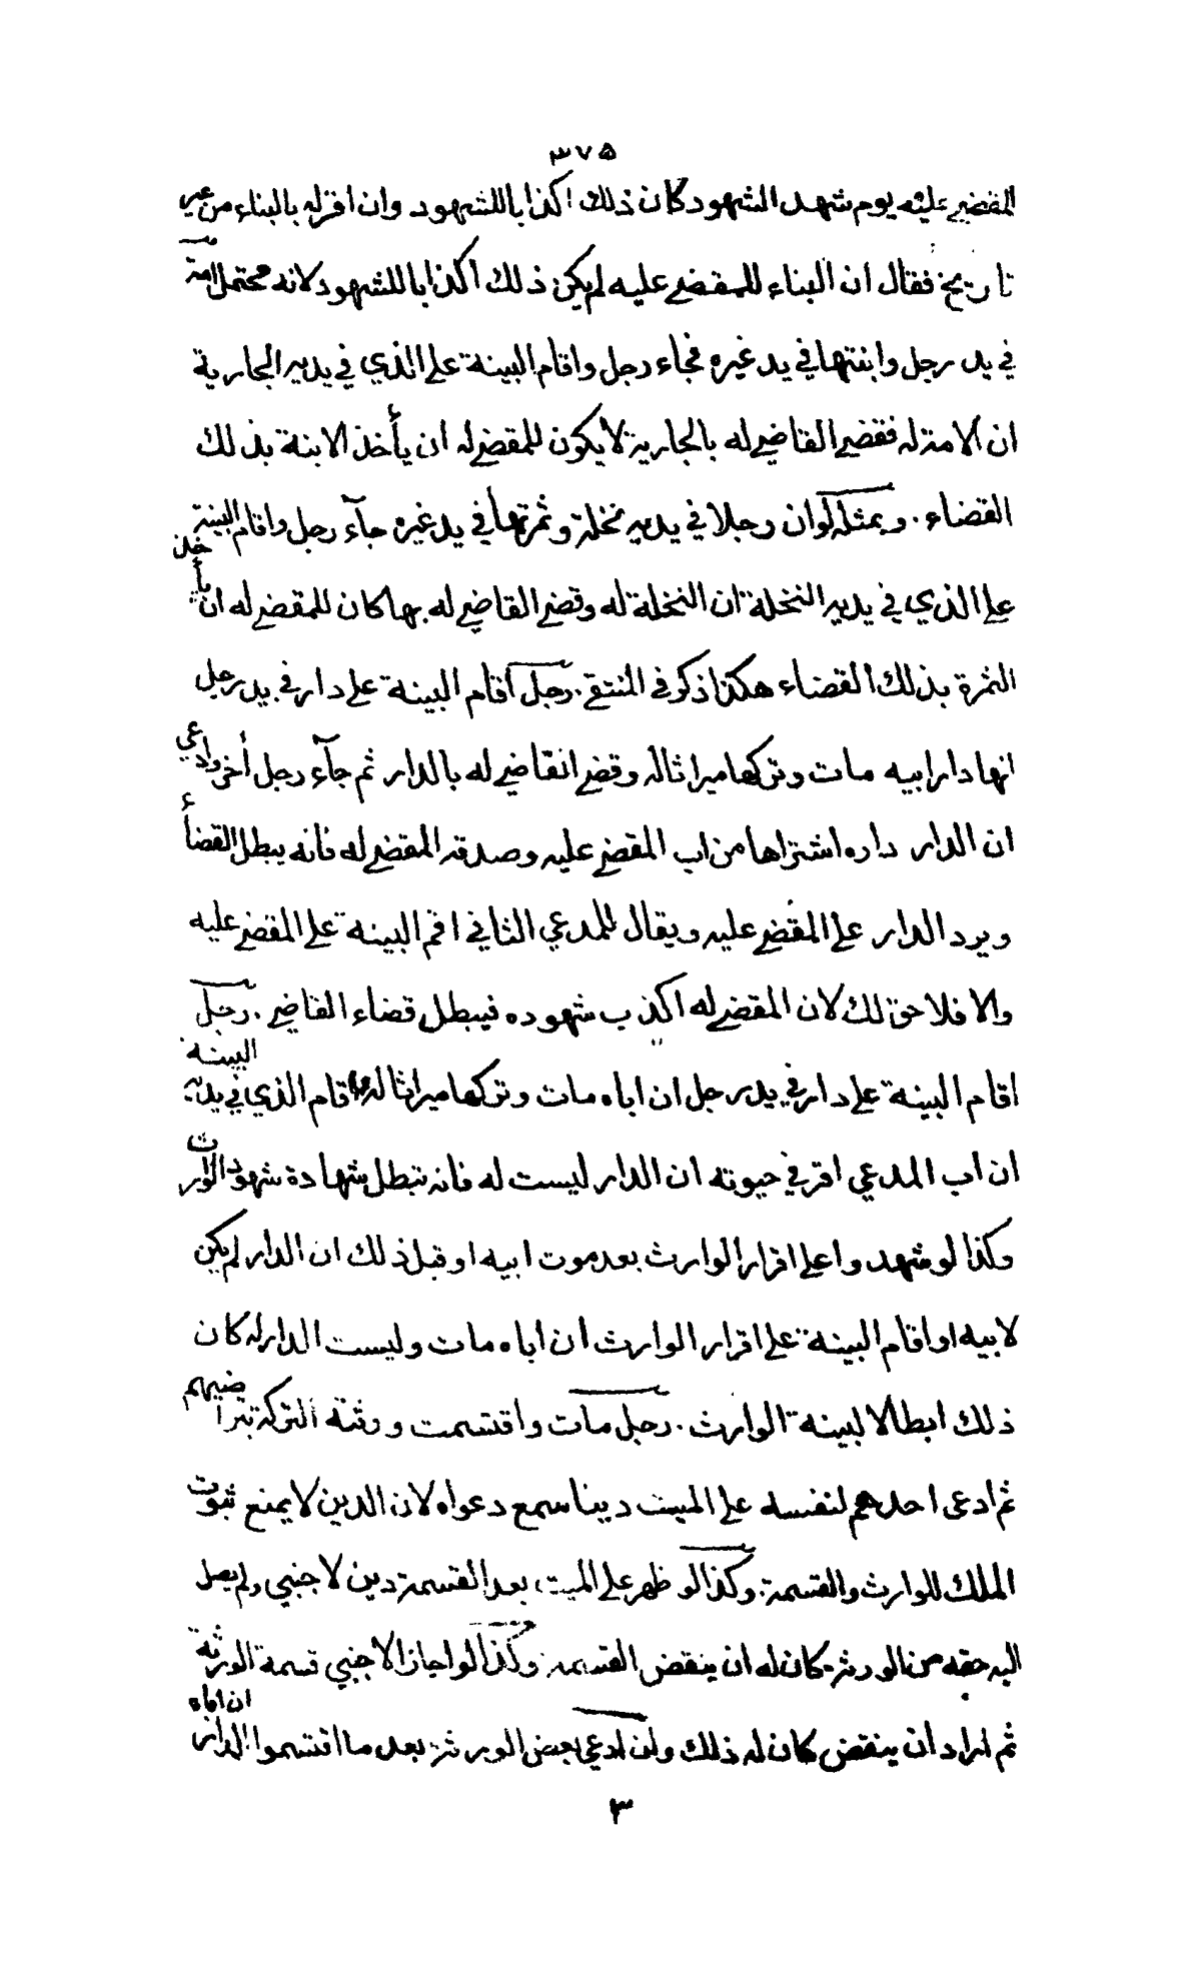 ٣٧٥
المقضي عليه يوم شهد الشهود كان ذلك اكذابا للشهود وان اقر له بالبناء من غير
تاريخ فقال ان البناء للمقضي عليه لم يكن ذلك اكذابا للشهود لانه محتمل امة
في يد رجل وابنتها في يد غيره فجاء رجل واقام البينة على الذي في يديه الجارية
ان الامة له فقضى القاضي له بالجارية لا يكون للمقضي له ان يأخذ الابنة بذلك
القضاء . وبمثله لو ان رجلا في يديه نخلة وثمرتها في يد غيره جآء رجل واقام البينة
على الذي في يديه النخلة ان النخلة له وقضى القاضي له بها كان للمقضي له ان يأخذ
الثمرة بذلك القضاء هكذا ذكر في المنتقى . رجل اقام البينة على دار في يد رجل
انها دار ابيه مات وتركها ميراثا له وقضى القاضي له بالدار ثم جآء رجل أخر وادعى
ان الدار داره اشتراها من اب المقضي عليه وصدقه المقضي له فانه يبطل القضأء
ويرد الدار على المقضي عليه ويقال للمدعي الثاني اقم البينة على المقضي عليه
والا فلا حق لك لان المقضي له اكذب شهوده فيبطل قضاء القاضي . رجل
اقام البينة على دار في يد رجل ان اباه مات وتركها ميراثا له واقام الذي في يديه البينة
ان اب المدعي اقر في حيوته ان الدار ليست له فانه تبطل شهادة شهود الوارث
وكذا لو شهدوا على اقرار الوارث بعد موت ابيه او قبل ذلك ان الدار لم يكن
لابيه او اقام البينة على اقرار الوارث ان اباه مات وليست الدار له كان
ذلك ابطالا لبينة الوارث . رجل مات واقتسمت ورثته التركة بتراضيهم
ثم ادعى احدهم لنفسه على الميت دينا سمع دعواه لان الدين لا يمنع ثبوت
الملك للوارث والقسمة . وكذا لو ظهر على الميت بعد القسمة دين لاجنبي ولم يصل
اليه حقه من الورثة كان له ان ينقض القسمة . وكذا لو اجاز الاجنبي قسمة الورثة
ثم اراد ان ينقض كان له ذلك ولن ادعى بعض الورثة بعد ما اقتسموا الدار ان اباه
٣